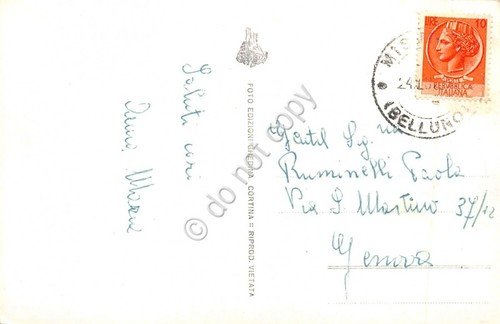 Saluti cari
Anna Maria
FOTO EDIZIONI GHEDINA CORTINA = RIPROD. VIETATA
do not copy
LIRE 10
REPUBBLICA
ITALIANA
(BELLUNO)
Gentil Sig.na
Ruminelli Paola
Via S. Martino 37/12
Genova